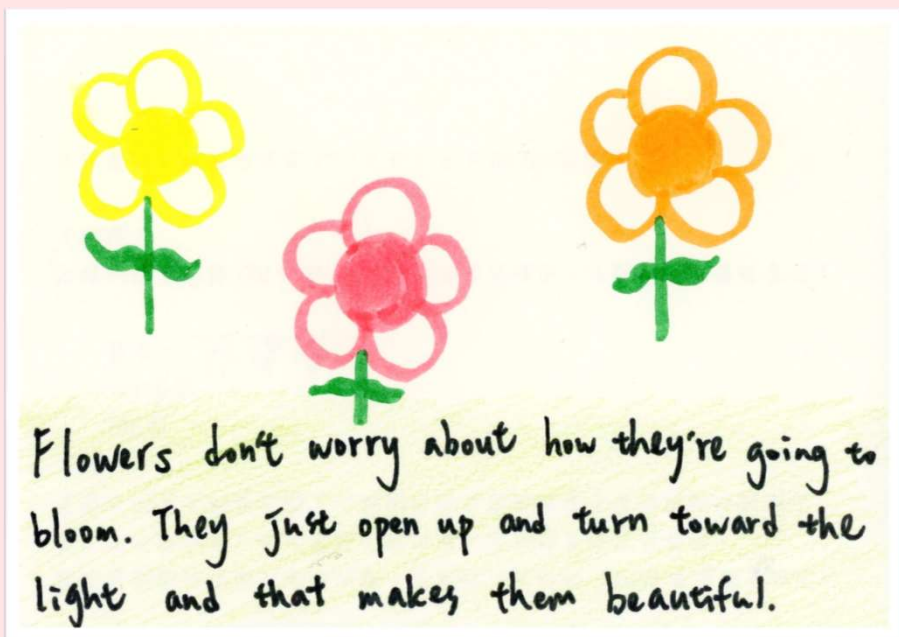 Flowers don't worry about how they're going to
bloom. They just open up and turn toward the
light and that makes them beautiful.